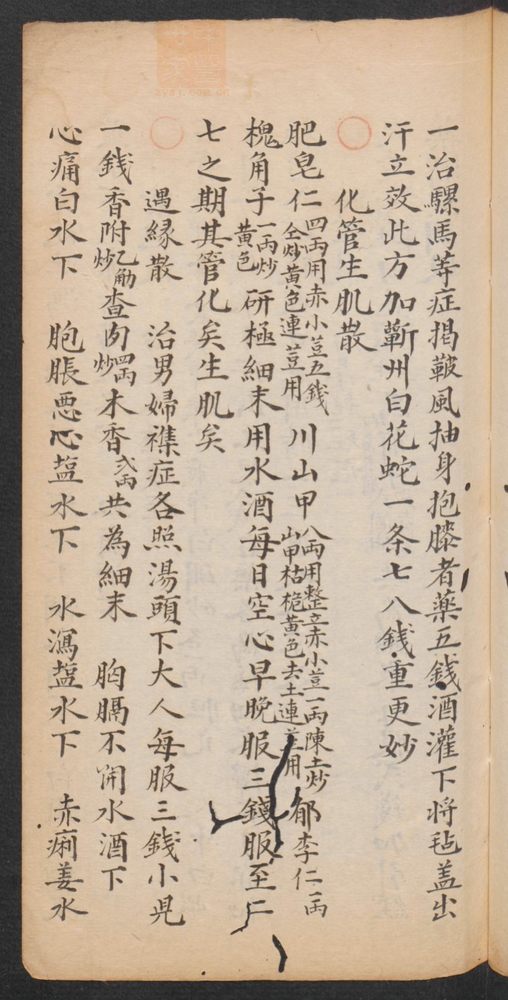 一治騾馬等症揭鞍風抽身抱膝者藥五錢酒灌下将毡盖出
汗立效此方加蘄州白花蛇一条七八錢重更妙
化管生肌散
肥皂仁四両用赤小荳五錢仝炒黄色連荳用 川山甲八両用整立赤小荳一両陳土炒山甲枯桅黄色去土連荳用 郁李仁一両
槐角子一両炒黄色 研極細末用水酒每日空心早晚服三錢服至二
七之期其管化矣生肌矣
遇縁散 治男婦襍症各照湯頭下大人每服三錢小児
一錢香附乙觔炒查肉四両炒木香弍両共為細末 胸膈不開水酒下
心痛白水下 胞脹悪心塩水下 水瀉塩水下 赤痢姜水